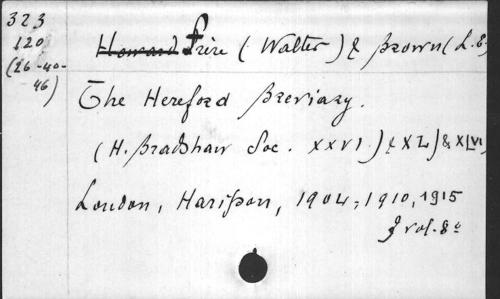 323
120
(26-40-
46)
Howard Frere (Walter) & Brown (L.E.
The Hereford Breviary.
(H. Bradshaw Soc. XXVI) & XL) & XLVI
London, Harifson, 1904, 1910, 1915
3 vol. 8º